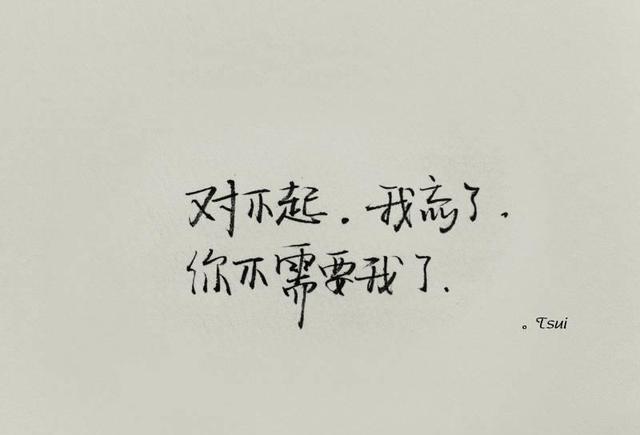 对不起.我忘了.
你不需要我了.
。Tsui